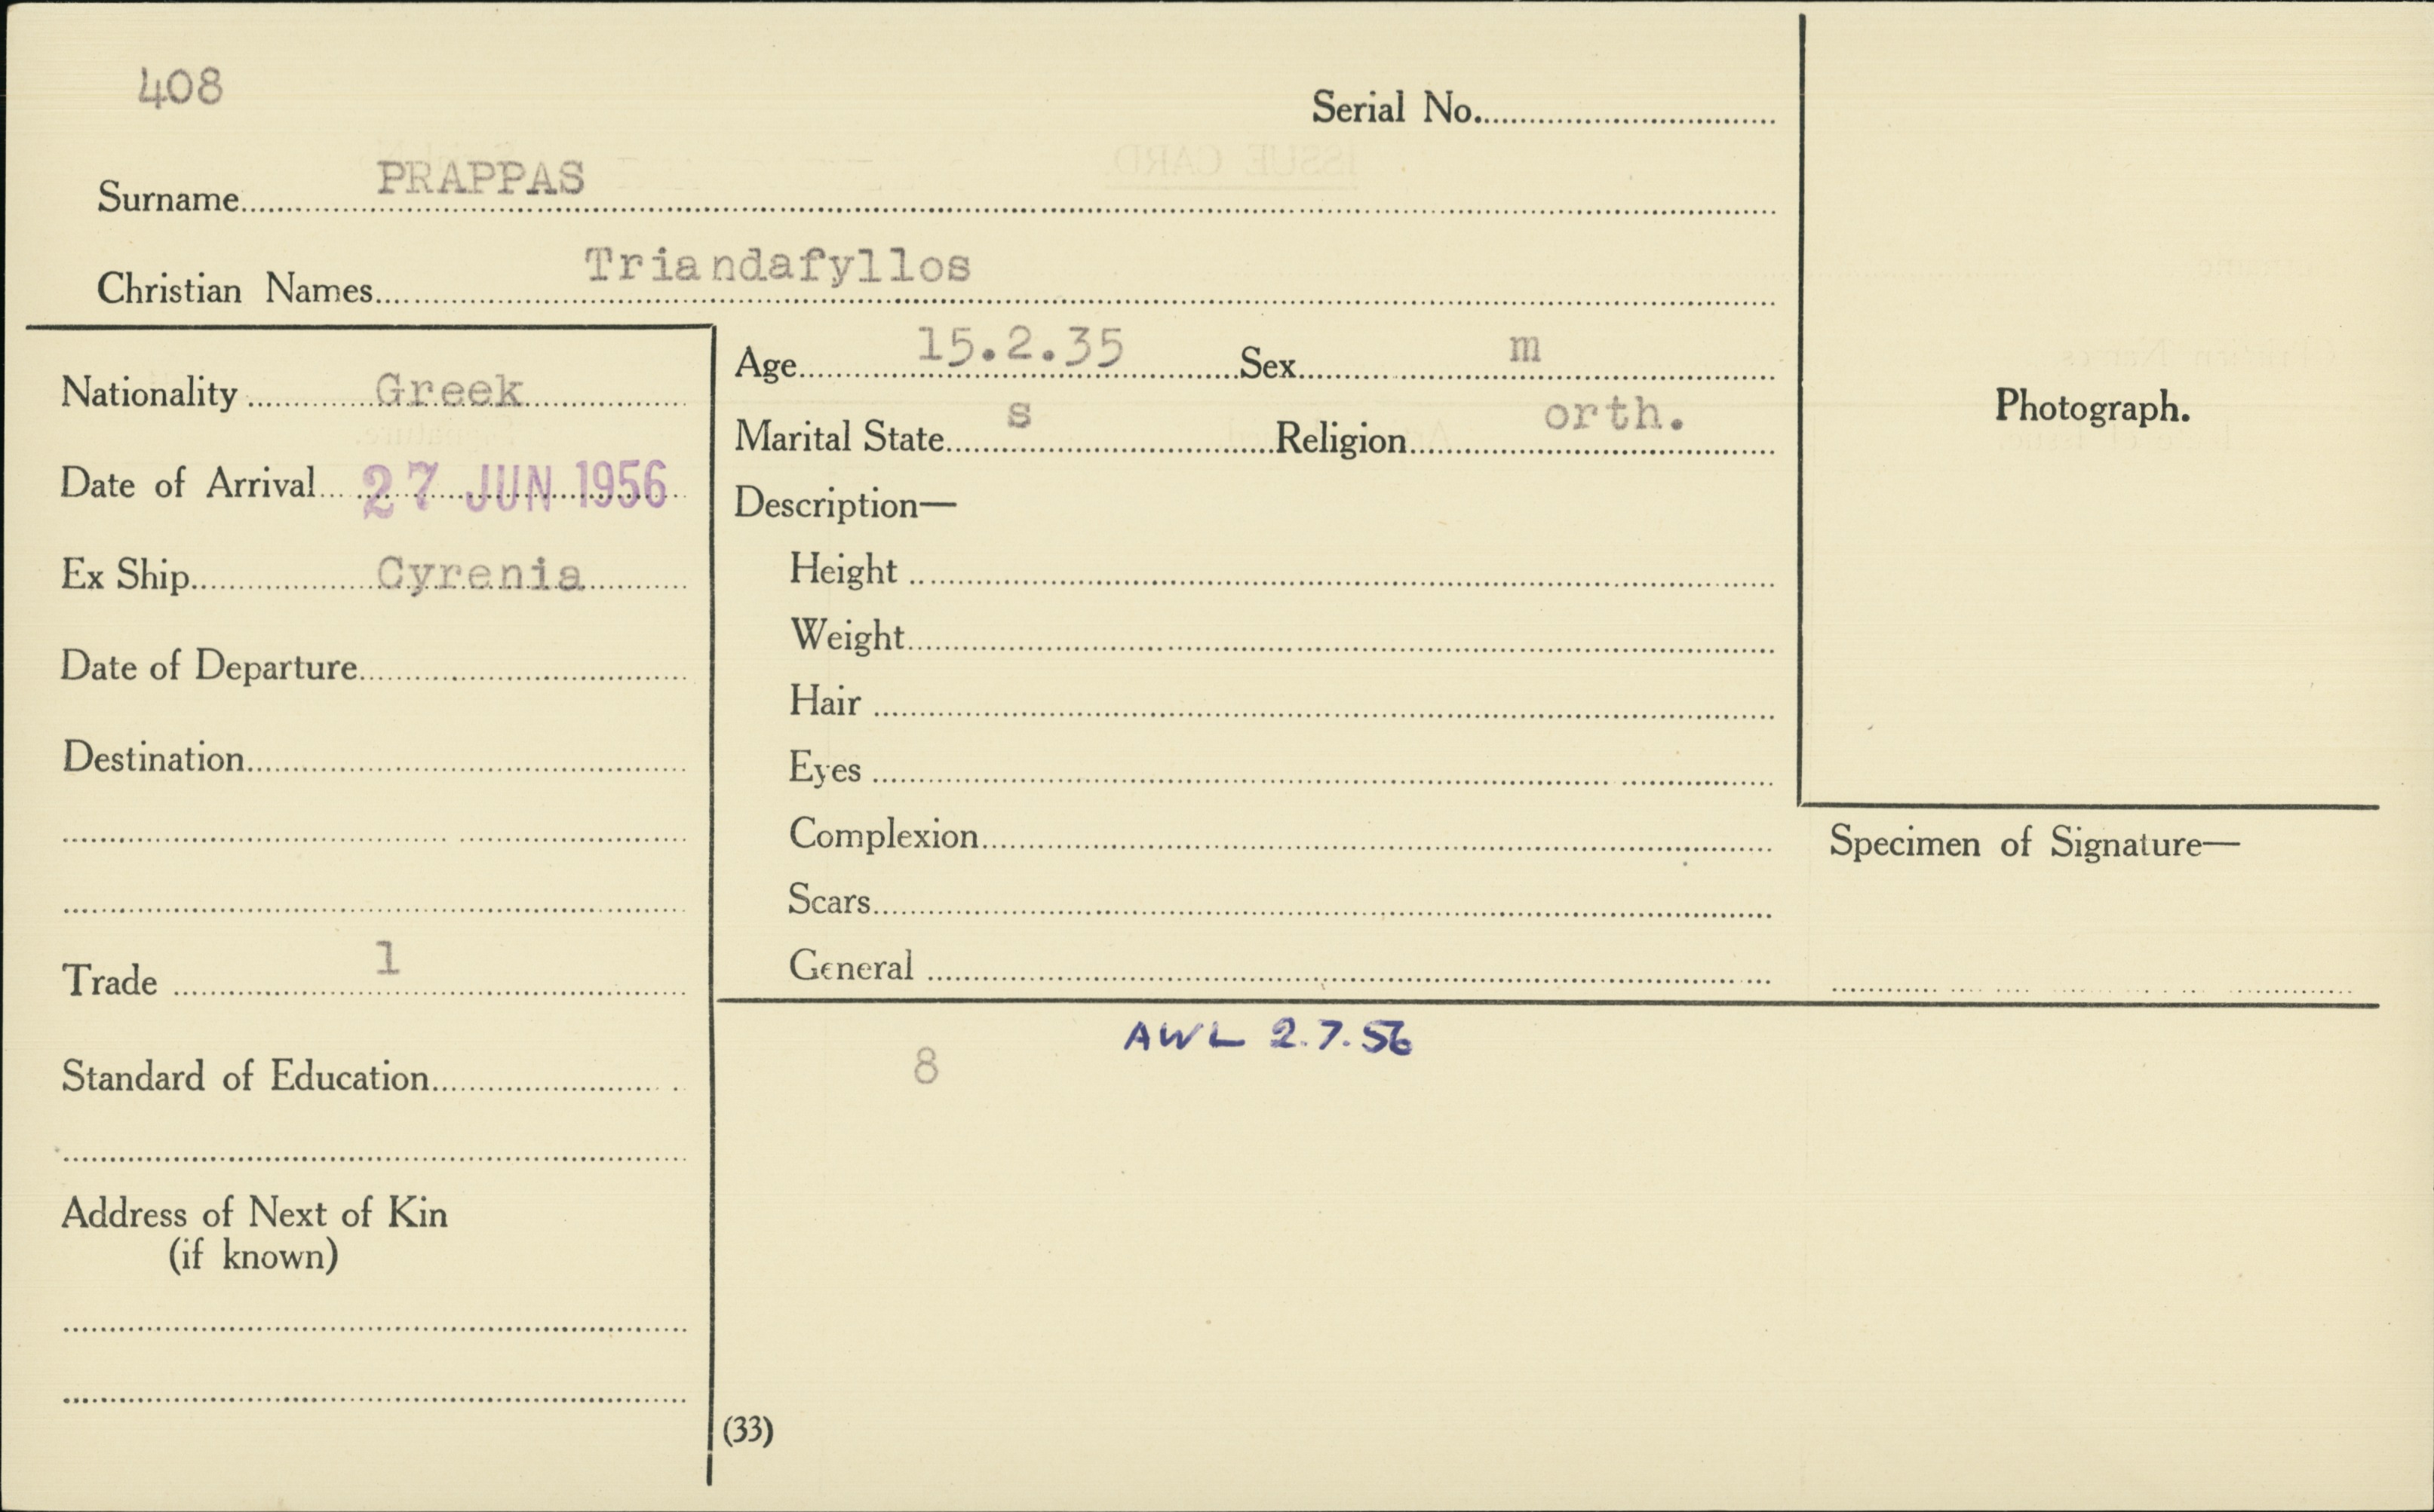 408
Serial No.
Surname PRAPPAS
Christian Names Triandafyllos
Nationality Greek
Date of Arrival 27 JUN 1956
Ex Ship Cyrenia
Date of Departure
Destination
Trade 1
Standard of Education
Address of Next of Kin
(if known)
Age 15.2.35 Sex m
Marital State s Religion orth.
Description—
Height
Weight
Hair
Eyes
Complexion
Scars
General
Photograph.
Specimen of Signature—
AWL 2.7.56
8
(33)